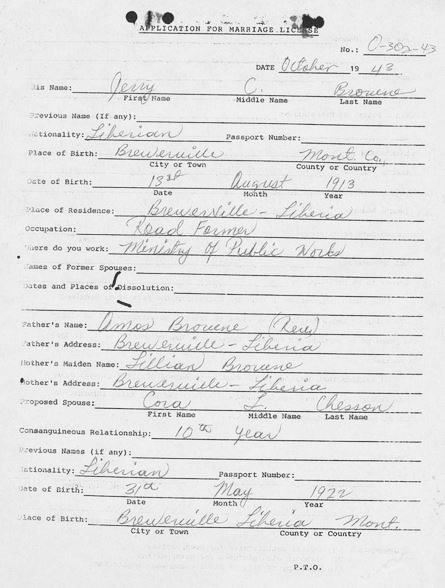 APPLICATION FOR MARRIAGE LICENSE
No.: O-302-43
DATE October 19 43
His Name: Jerry C. Browne
First Name Middle Name Last Name
Previous Name (If any):
Nationality: Liberian Passport Number:
Place of Birth: Brewerville Mont. Co.
City or Town County or Country
Date of Birth: 13th August 1913
Date Month Year
Place of Residence: Brewerville - Liberia
Occupation: Road Former
Where do you work: Ministry of Public Works
Names of Former Spouses:
Dates and Places of Dissolution:
Father's Name: Amos Browne (Rev)
Father's Address: Brewerville - Liberia
Mother's Maiden Name: Lillian Browne
Mother's Address: Brewerville - Liberia
Proposed Spouse: Cora L. Chesson
First Name Middle Name Last Name
Consanguineous Relationship: 10th Year
Previous Names (if any):
Nationality: Liberian Passport Number:
Date of Birth: 31st May 1922
Date Month Year
Place of Birth: Brewerville Liberia Mont.
City or Town County or Country
P.T.O.